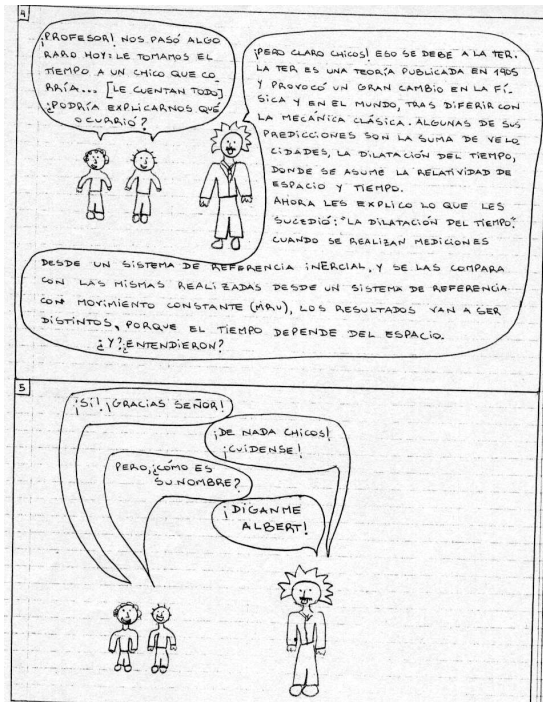 4
¡PROFESOR! NOS PASÓ ALGO
RARO HOY: LE TOMAMOS EL
TIEMPO A UN CHICO QUE CO
RRÍA... [LE CUENTAN TODO]
¿PODRÍA EXPLICARNOS QUÉ
OCURRIÓ?
¡PERO CLARO CHICOS! ESO SE DEBE A LA TER.
LA TER ES UNA TEORÍA PUBLICADA EN 1905
Y PROVOCÓ UN GRAN CAMBIO EN LA FÍ_
SICA Y EN EL MUNDO, TRAS DIFERIR CON
LA MECÁNICA CLÁSICA. ALGUNAS DE SUS
PREDICCIONES SON LA SUMA DE VELO
CIDADES, LA DILATACIÓN DEL TIEMPO,
DONDE SE ASUME LA RELATIVIDAD DE
ESPACIO Y TIEMPO.
AHORA LES EXPLICO LO QUE LES
SUCEDIÓ: "LA DILATACIÓN DEL TIEMPO".
CUANDO SE REALIZAN MEDICIONES
DESDE UN SISTEMA DE REFERENCIA INERCIAL, Y SE LAS COMPARA
CON LAS MISMAS REALIZADAS DESDE UN SISTEMA DE REFERENCIA
CON MOVIMIENTO CONSTANTE (MRU), LOS RESULTADOS VAN A SER
DISTINTOS, PORQUE EL TIEMPO DEPENDE DEL ESPACIO.
¿Y? ¿ENTENDIERON?
5
¡SÍ! ¡GRACIAS SEÑOR!
¡DE NADA CHICOS!
¡CUÍDENSE!
PERO, ¿CÓMO ES
SU NOMBRE?
¡DÍGANME
ALBERT!